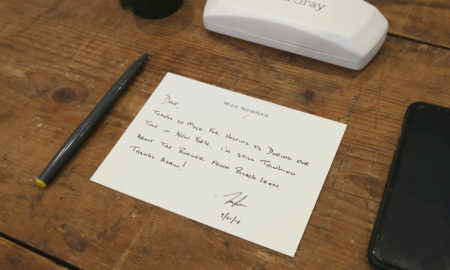 Gray
Mike Newman
Dave,
Thanks so much for hosting us during our
time in New York. I'm still thinking
about the burger from Black Iron.
Thanks again!